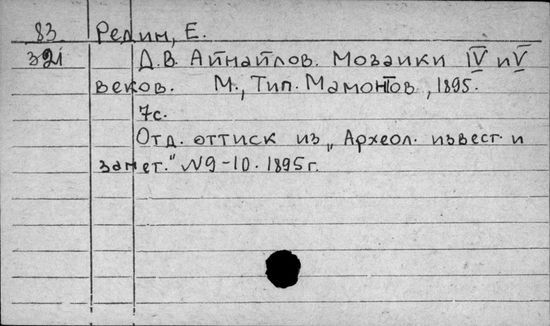 83 Редин, Е.
321 Д.В. Айнайлов. Мозаики IV и V
веков. М., Тип. Мамонтов, 1895.
7с.
Отд. оттиск из „Археол. извест. и
замет." №9-10. 1895г.